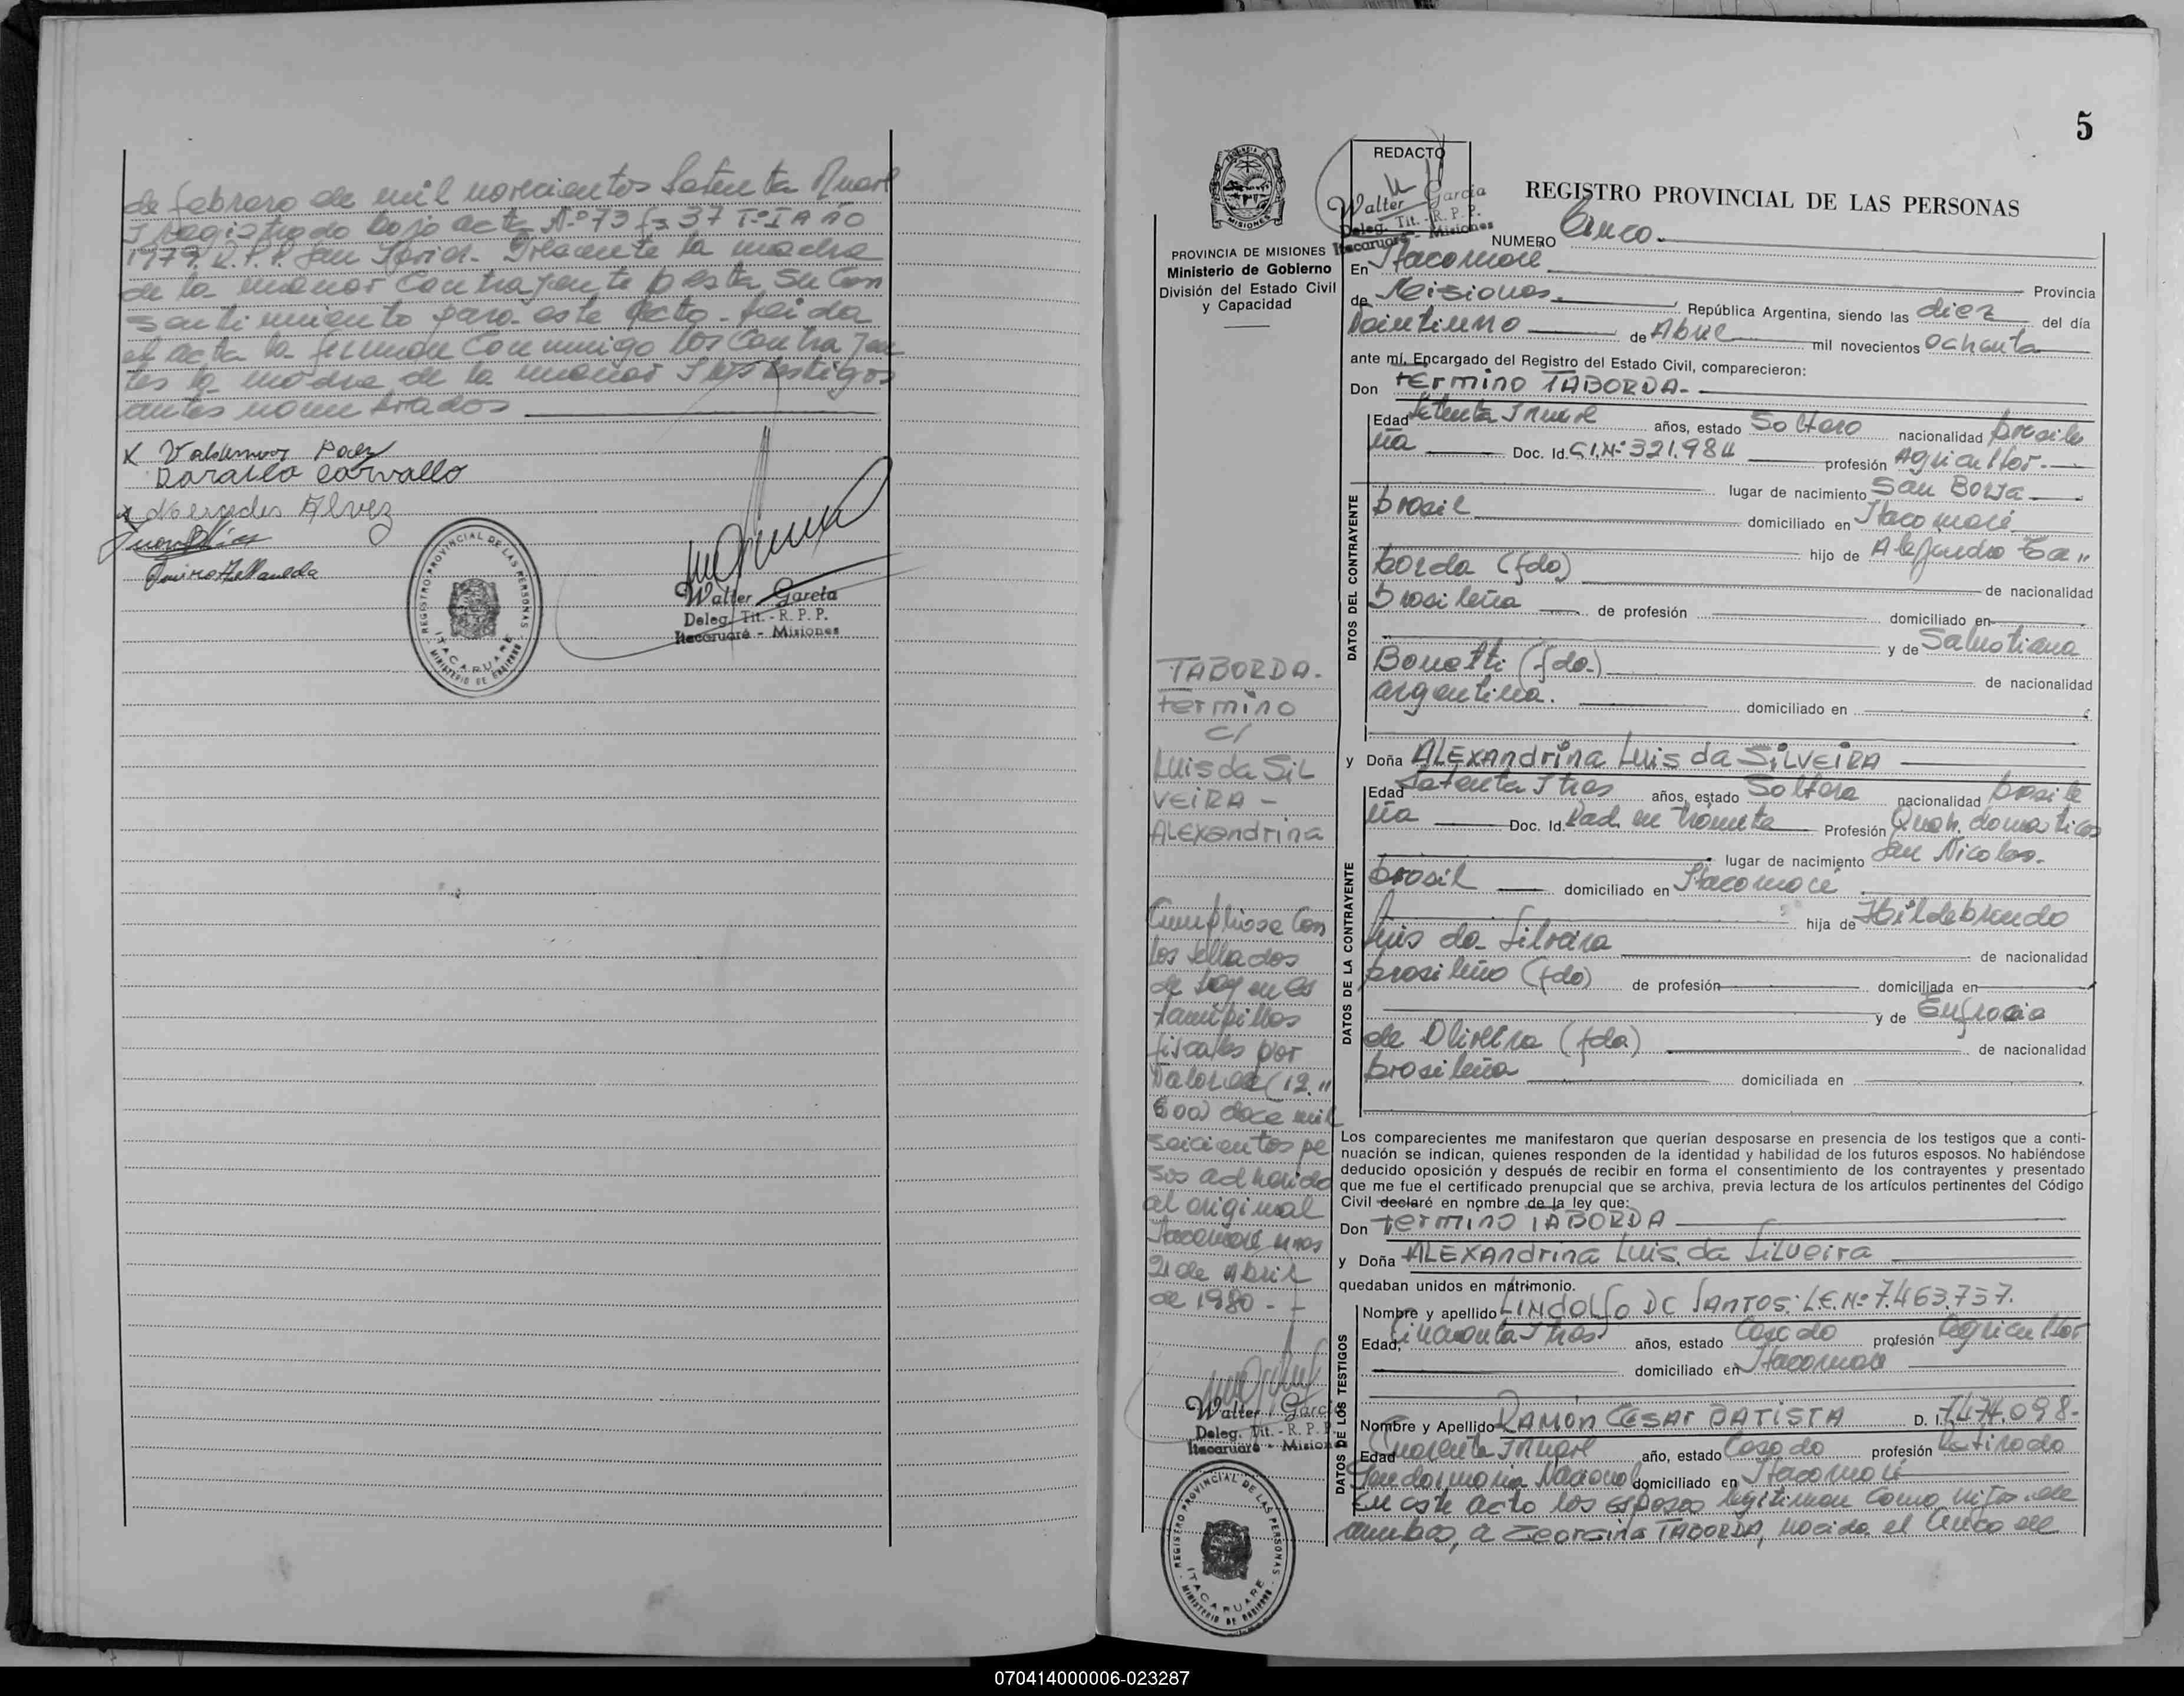 de febrero de mil novecientos setenta y nueve
y registrado bajo acta Nº 73 fs 37 Tº I Año
1979. R.P.P. San Javier. Presente la madre
de la menor contrayente presta su con
sentimiento para este acto. Leida
el acta la firman conmigo los contrayen
tes la madre de la menor y los testigos
antes nombrados
x Valdemar Paez
Carvallo
x Mercedes Alvez
REGISTRO PROVINCIAL DE LAS PERSONAS
ITACARUARE
MINISTERIO DE GOBIERNO
Walter Garcia
Deleg. Tit. - R. P. P.
Itacaruaré - Misiones
5
REDACTO
Walter Garcia
Deleg. Tit. - R. P. P.
Itacaruaré - Misiones
REGISTRO PROVINCIAL DE LAS PERSONAS
PROVINCIA DE MISIONES
Ministerio de Gobierno
División del Estado Civil
y Capacidad
NUMERO Cinco.-
En Itacaruaré Provincia
de Misiones. República Argentina, siendo las diez del día
Veintiuno de Abril mil novecientos ochenta
ante mí, Encargado del Registro del Estado Civil, comparecieron:
Don Fermino TABORDA-
Edad Setenta y nueve años, estado Soltero nacionalidad brasile
ña Doc. Id. C.I.Nº 321.984 profesión Agricultor.
lugar de nacimiento San Borja
brasil domiciliado en Itacaruaré
hijo de Alejandro Ta"
borda (fdo) de nacionalidad
brasileña de profesión domiciliado en
y de Salustiana
Bonetti (fda.) de nacionalidad
argentina. domiciliado en
DATOS DEL CONTRAYENTE
y Doña ALEXAndrina Luis da SiLVEIRA
Edad Setenta y tres años, estado Soltera nacionalidad brasile
ña Doc. Id. Rad. en trámite Profesión Queh. domésticos
lugar de nacimiento San Nicolas.
brasil domiciliado en Itacaruaré
hija de Hildebrando
Luis da Silveira de nacionalidad
brasileño (fdo) de profesión domiciliada en
y de Eufrocia
de Oliveira (fda) de nacionalidad
brasileña domiciliada en
DATOS DE LA CONTRAYENTE
Los comparecientes me manifestaron que querían desposarse en presencia de los testigos que a conti-
nuación se indican, quienes responden de la identidad y habilidad de los futuros esposos. No habiéndose
deducido oposición y después de recibir en forma el consentimiento de los contrayentes y presentado
que me fue el certificado prenupcial que se archiva, previa lectura de los artículos pertinentes del Código
Civil declaré en nombre de la ley que:
Don Fermino TABORDA
y Doña ALEXAndrina Luis da Silveira
quedaban unidos en matrimonio.
Nombre y apellido LINDOLFO DC SANTOS: L.E.Nº 7.463.737.
Edad, Cincuenta y tres años, estado Casado profesión Agricultor
domiciliado en Itacaruaré
Nombre y Apellido RAMÓN CESAR BATISTA D. I. 7.474.098-
Edad Cuarenta y nueve año, estado Casado profesión Retirado
Gendarmeria Nacional domiciliado en Itacaruaré
DATOS DE LOS TESTIGOS
En este acto los esposos legitiman como hijos de
ambos, a Georgina TABORDA, nacida el Cinco de
TABORDA.
Fermino
c/
Luis da SiL
VEIRA -
ALExandrina
Cumpliose con
los sellados
de Ley en es
tampillas
fiscales por
valor de (12."
600) doce mil
seicientos pe
sos adherido
al original
Itacaruaré Mnes
21 de Abril
de 1980.-
Walter Garcia
Deleg. Tit. - R. P. P.
Itacaruaré - Misiones
REGISTRO PROVINCIAL DE LAS PERSONAS
ITACARUARE
MINISTERIO DE GOBIERNO
070414000006-023287